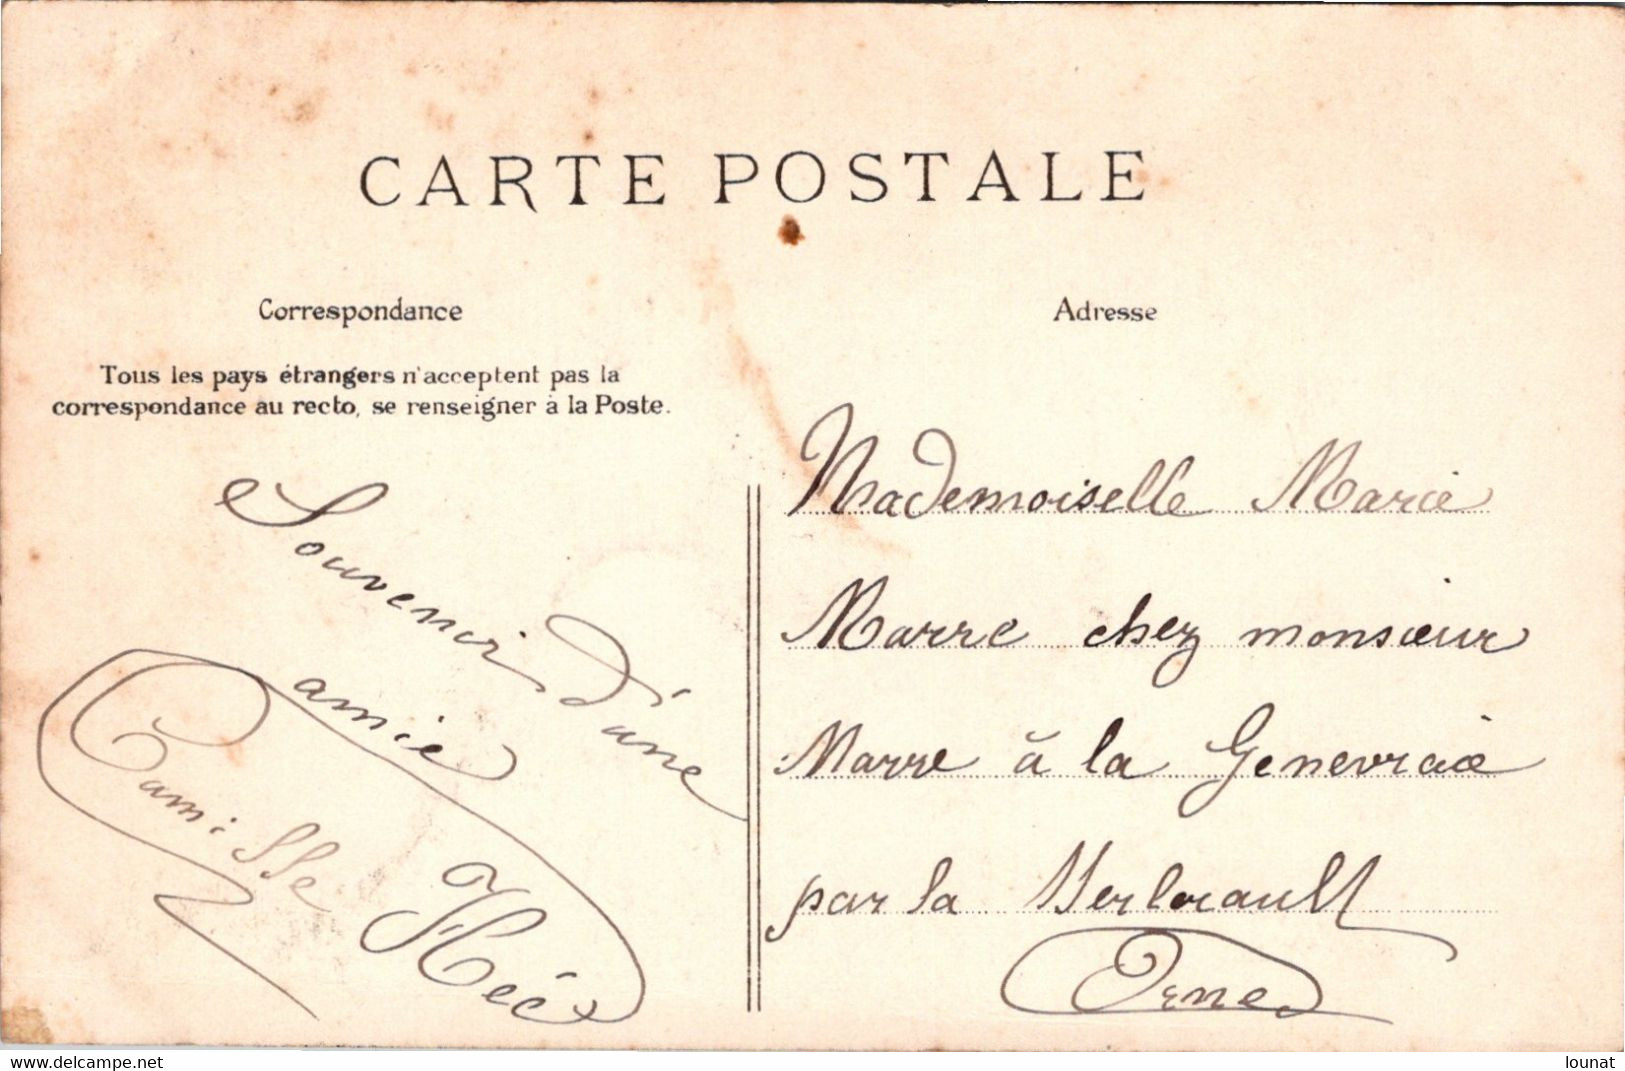 CARTE POSTALE
Correspondance
Tous les pays étrangers n'acceptent pas la
correspondance au recto, se renseigner à la Poste.
Souvenir d'une
amie
Camille
Adresse
Mademoiselle Marie
Marre chez monsieur
Marre à la Genevraie
par la Merlerault
Orne
www.delcampe.net
lounat